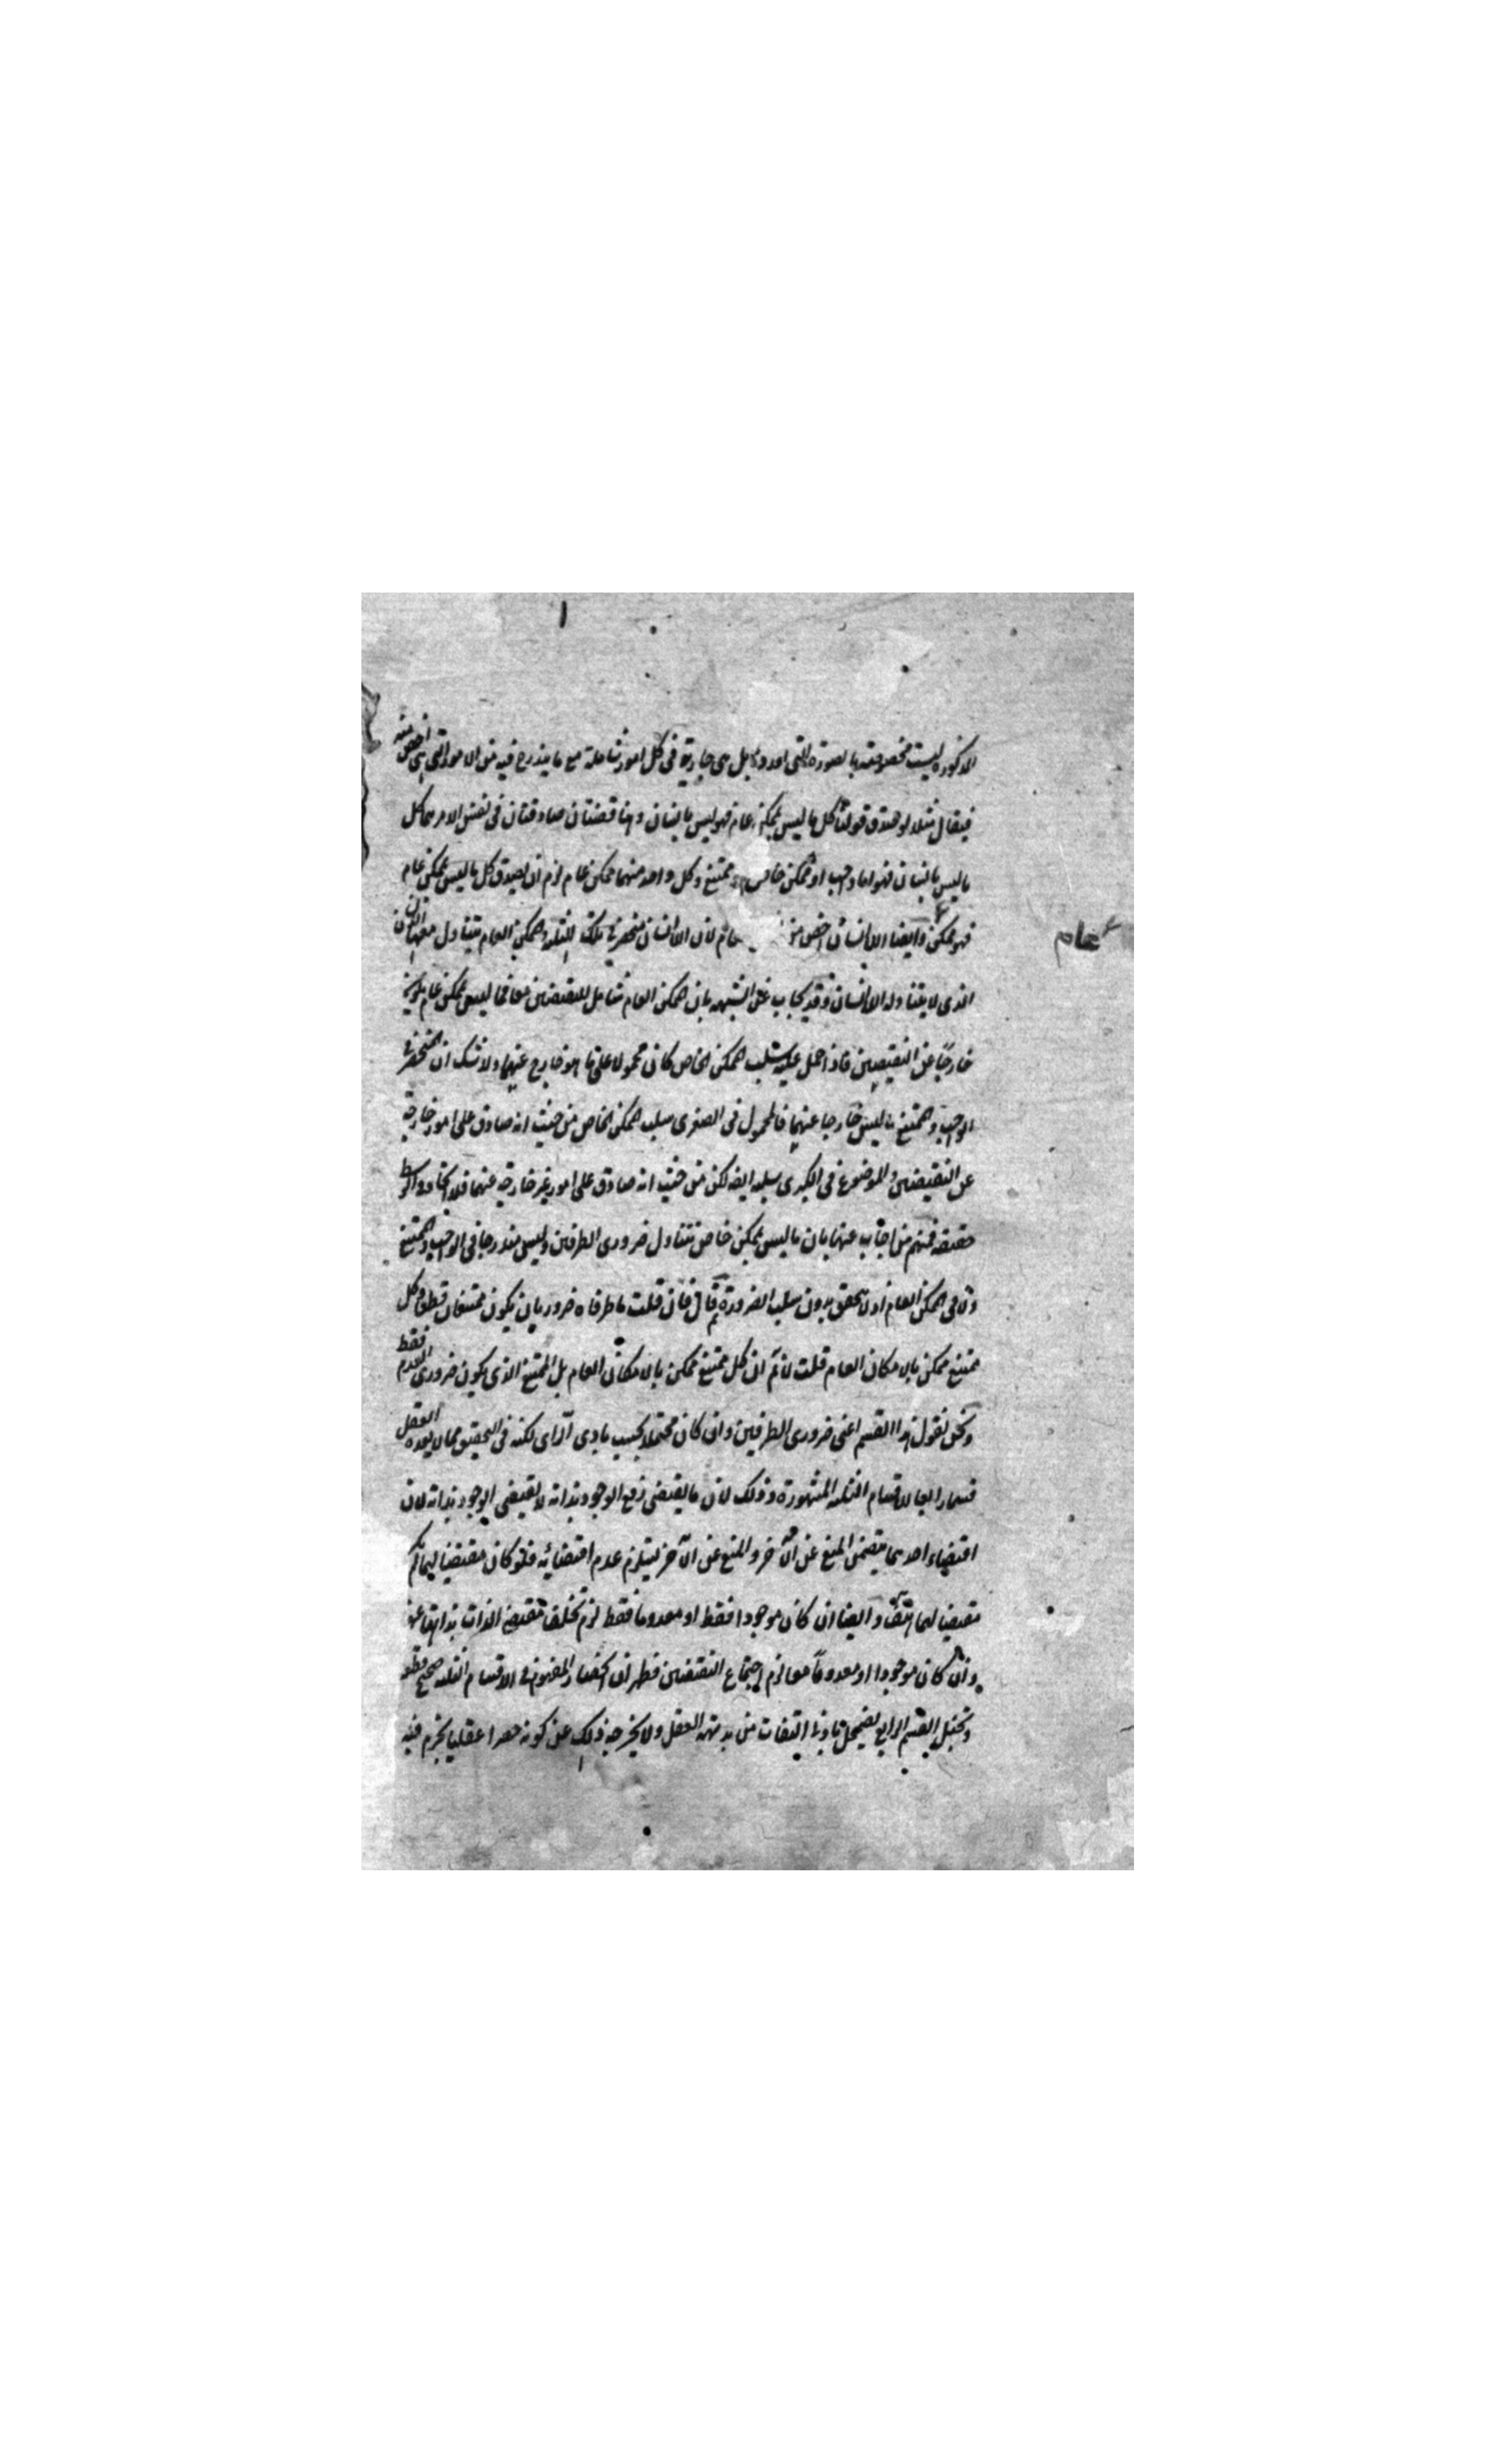 المذكورة ليست مخصوصة بالصورة التى اوردوها بل هى جارية فى كل امور شاملة مع ما يندرج فيه من الامور التى هى اخص منه
فيقال مثلا لو صدق قولنا كل ما ليس بممكن عام فهو ليس بانسان وهنا قضيتان صادقتان فى نفس الامر هما كل
ما ليس بانسان فهو اما واجب او ممكن خاص او ممتنع وكل واحد منهما ممكن عام لزم ان يصدق كل ما ليس بممكن عام
فهو ممكن وايضا اللاانسان اخص من عام لان اللاانسان منحصر فى تلك الثلثة والممكن العام يتناول معها الانسان
عام
الذى لا يتناوله اللاانسان وقد يجاب عن الشبهه بان الممكن العام شامل للنقيضين معا فما ليس بممكن عام يكون
خارجا عن النقيضين فاذا حمل عليه سلب الممكن الخاص كان محمولا على ما هو خارج عنهما ولا شك ان المنحصر فى
الواجب والممتنع ما ليس خارجا عنهما فالمحمول فى الصغرى سلب الممكن الخاص من حيث انه صادق على امور خارجة
عن النقيضين والموضوع فى الكبرى سلبه ايضا لكن من حيث انه صادق على امور غير خارجة عنهما فلا اتحاد فى الوسط
حقيقة فمنهم من اجاب عنها بان ما ليس بممكن خاص يتناول ضرورى الطرفين وليس مندرجا فى الواجب والممتنع
ولا فى الممكن العام اذ لا يتحقق بدون سلب الضرورة ثم قال فان قلت ما طرفاه ضروريان يكون ممتنعا قطعا وكل
ممتنع ممكن بالامكان العام قلت لانم ان كل ممتنع ممكن بالامكان العام بل الممتنع الذى يكون ضرورى العدم فقط
ونحن نقول هذا القسم اعنى ضرورى الطرفين وان كان محتملا بحسب بادى الراى لكنه فى التحقيق مما لا يعده العقل
قسما رابعا للاقسام الثلثة المشهورة وذلك لان ما يقتضى رفع الوجود بذاته لا يقتضى الوجود بذاته لان
اقتضاء احدهما يتضمن المنع عن الآخر والمنع عن الآخر يستلزم عدم اقتضائه فلو كان مقتضيا لهما لم يكن
مقتضيا لهما هف وايضا ان كان موجودا فقط او معدوما فقط لزم تخلف مقتضى الذات بذاتها عنها
وان كان موجودا او معدوما معا لزم اجتماع النقيضين فظهر ان انحصار المفهوم فى الاقسام الثلثة صحيح قطعا
وتخيل القسم الرابع يضمحل بادنى التفات من بديهة العقل ولا يخرجه ذلك عن كونه حصرا عقليا يجزم فيه